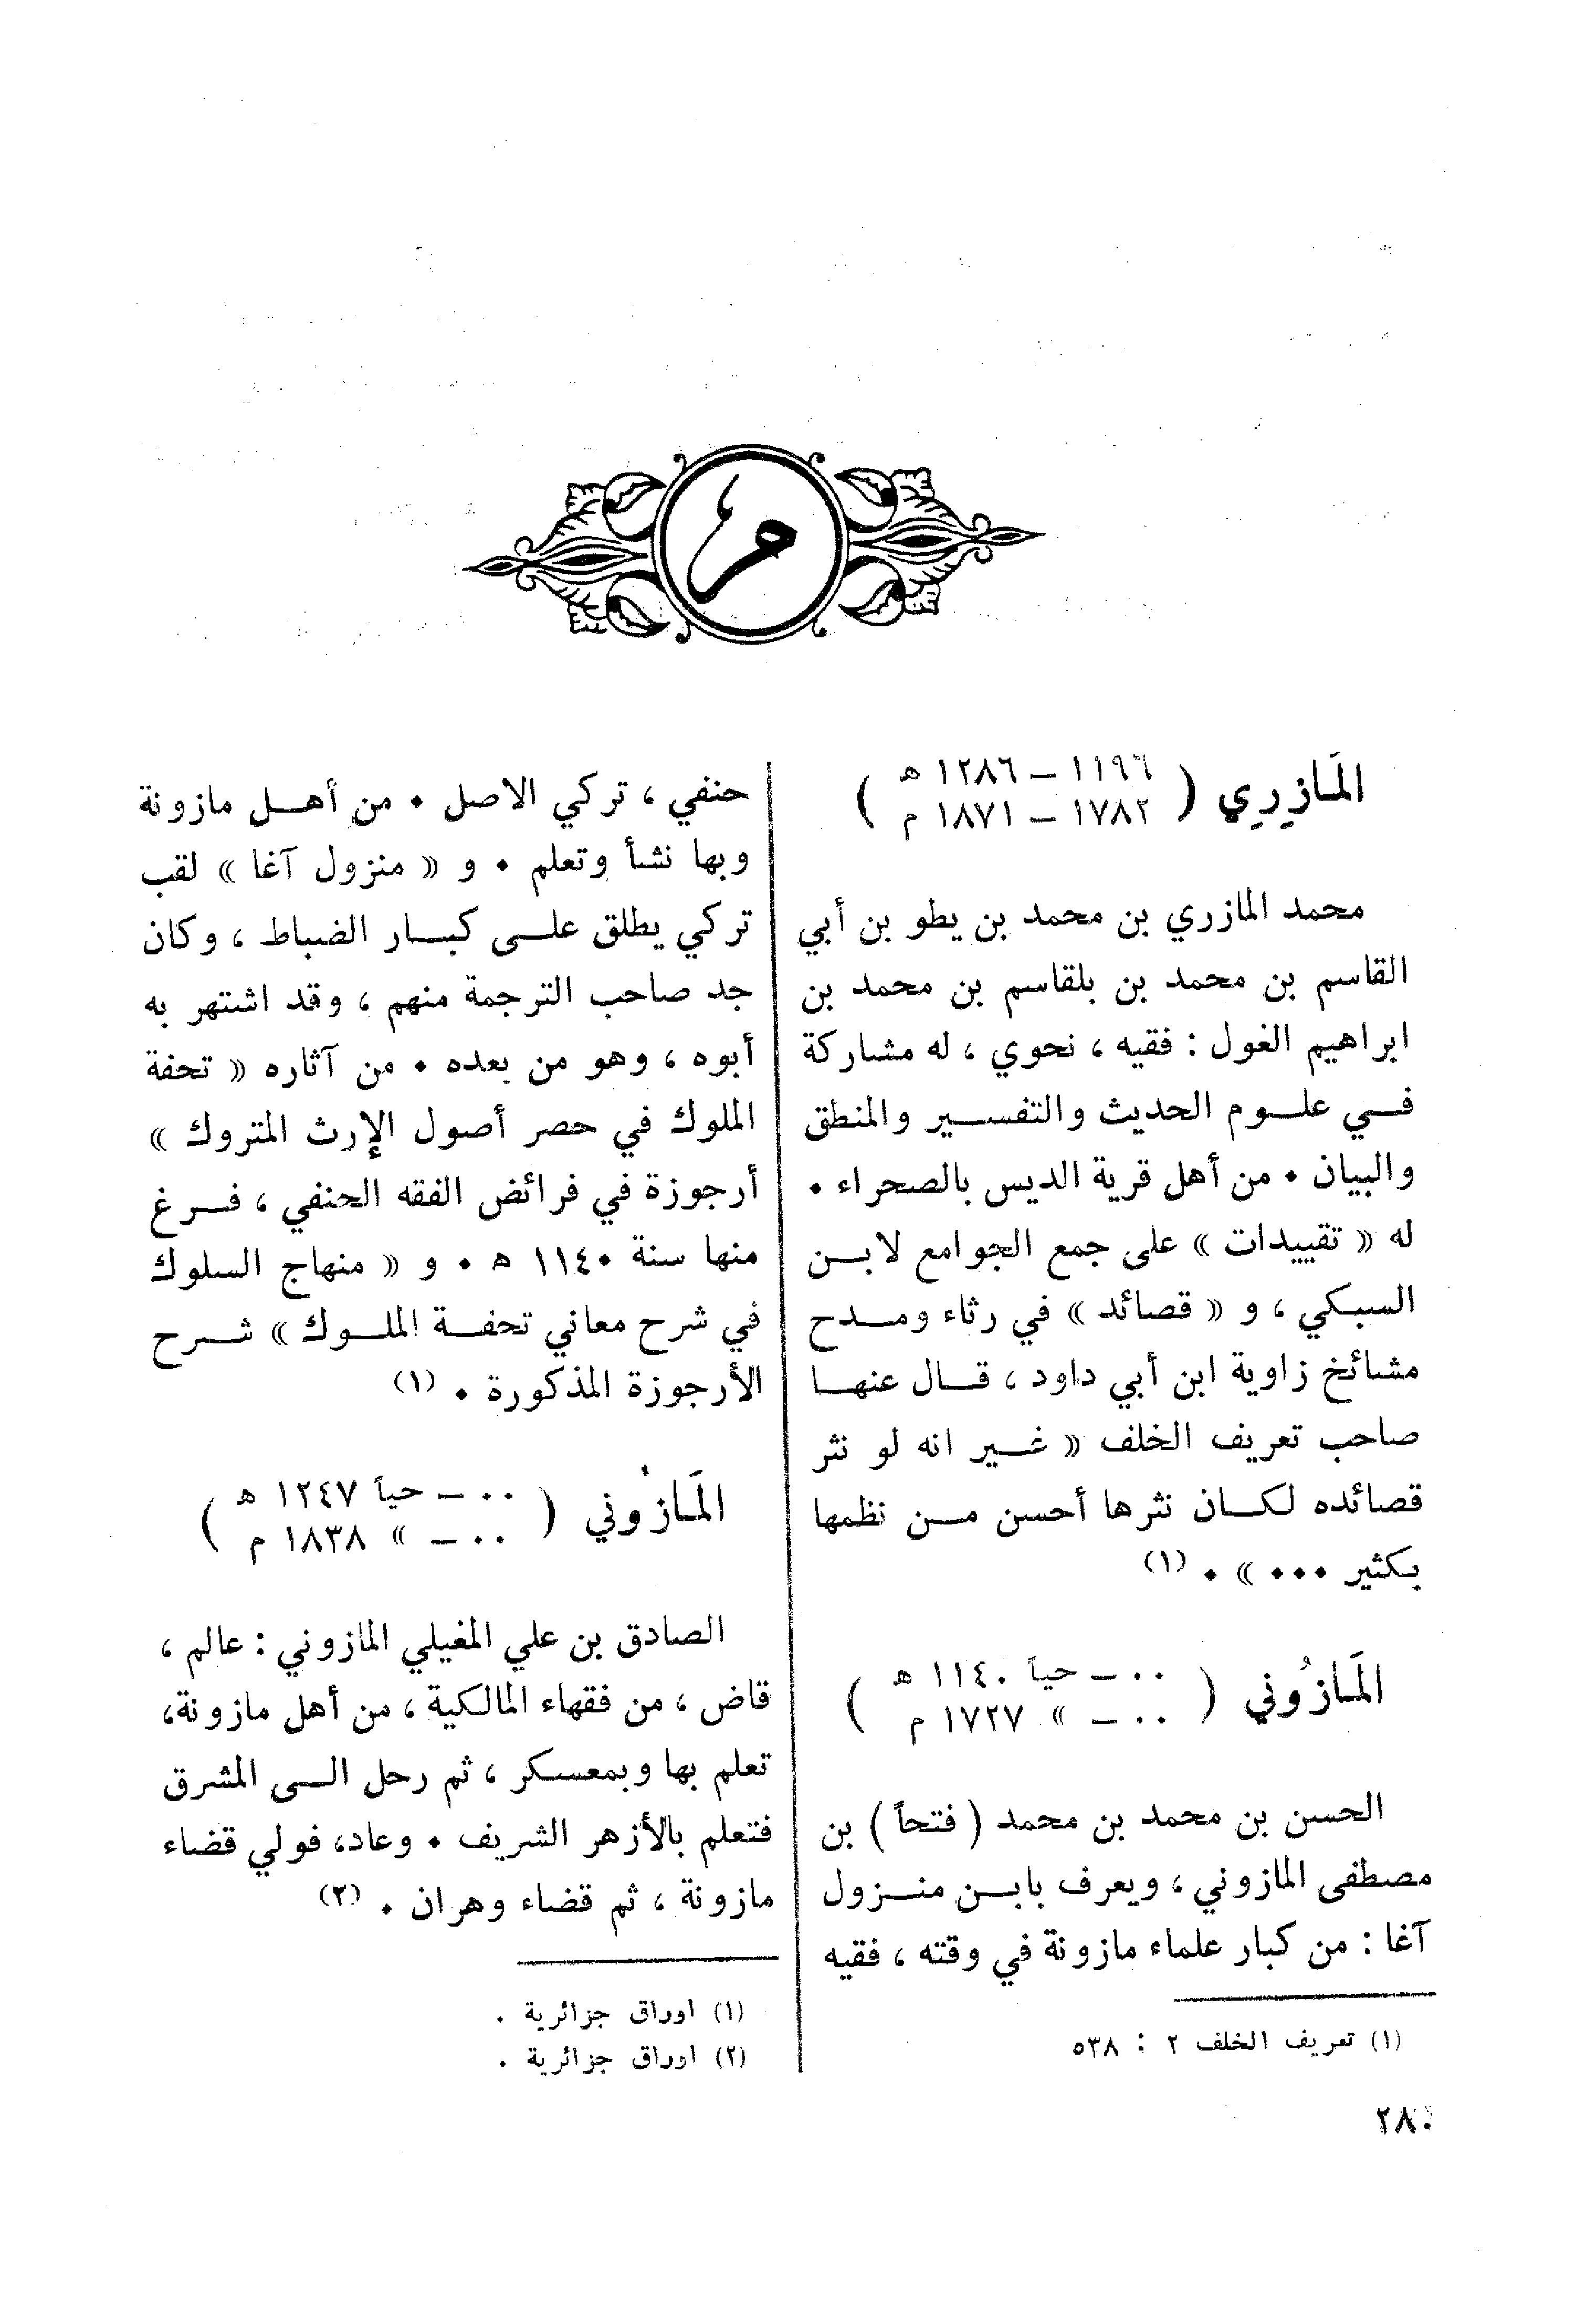 م
المَازِرِي ( ١١٩٦ – ١٢٨٦ هـ
١٧٨٢ – ١٨٧١ م )
محمد المازري بن محمد بن يطو بن أبي
القاسم بن محمد بن بلقاسم بن محمد بن
ابراهيم الغول : فقيه ، نحوي ، له مشاركة
في علوم الحديث والتفسير والمنطق
والبيان . من أهل قرية الديس بالصحراء .
له « تقييدات » على جمع الجوامع لابن
السبكي ، و « قصائد » في رثاء ومدح
مشائخ زاوية ابن أبي داود ، قال عنها
صاحب تعريف الخلف « غير انه لو نثر
قصائده لكان نثرها أحسن من نظمها
بكثير ... » . (١)
المَازُوني ( ٠٠ – حياً ١١٤٠ هـ
٠٠ – » ١٧٢٧ م )
الحسن بن محمد بن محمد ( فتحاً ) بن
مصطفى المازوني ، ويعرف بابن منزول
آغا : من كبار علماء مازونة في وقته ، فقيه
(١) تعريف الخلف ٢ : ٥٣٨
حنفي ، تركي الاصل . من أهل مازونة
وبها نشأ وتعلم . و « منزول آغا » لقب
تركي يطلق على كبار الضباط ، وكان
جد صاحب الترجمة منهم ، وقد اشتهر به
أبوه ، وهو من بعده . من آثاره « تحفة
الملوك في حصر أصول الإرث المتروك »
أرجوزة في فرائض الفقه الحنفي ، فرغ
منها سنة ١١٤٠ هـ . و « منهاج السلوك
في شرح معاني تحفة الملوك » شرح
الأرجوزة المذكورة . (١)
المَازُوني ( ٠٠ – حياً ١٢٤٧ هـ
٠٠ – » ١٨٣٨ م )
الصادق بن علي المغيلي المازوني : عالم ،
قاض ، من فقهاء المالكية ، من أهل مازونة،
تعلم بها وبمعسكر ، ثم رحل الى المشرق
فتعلم بالأزهر الشريف . وعاد، فولي قضاء
مازونة ، ثم قضاء وهران . (٢)
(١) اوراق جزائرية .
(٢) اوراق جزائرية .
٢٨٠